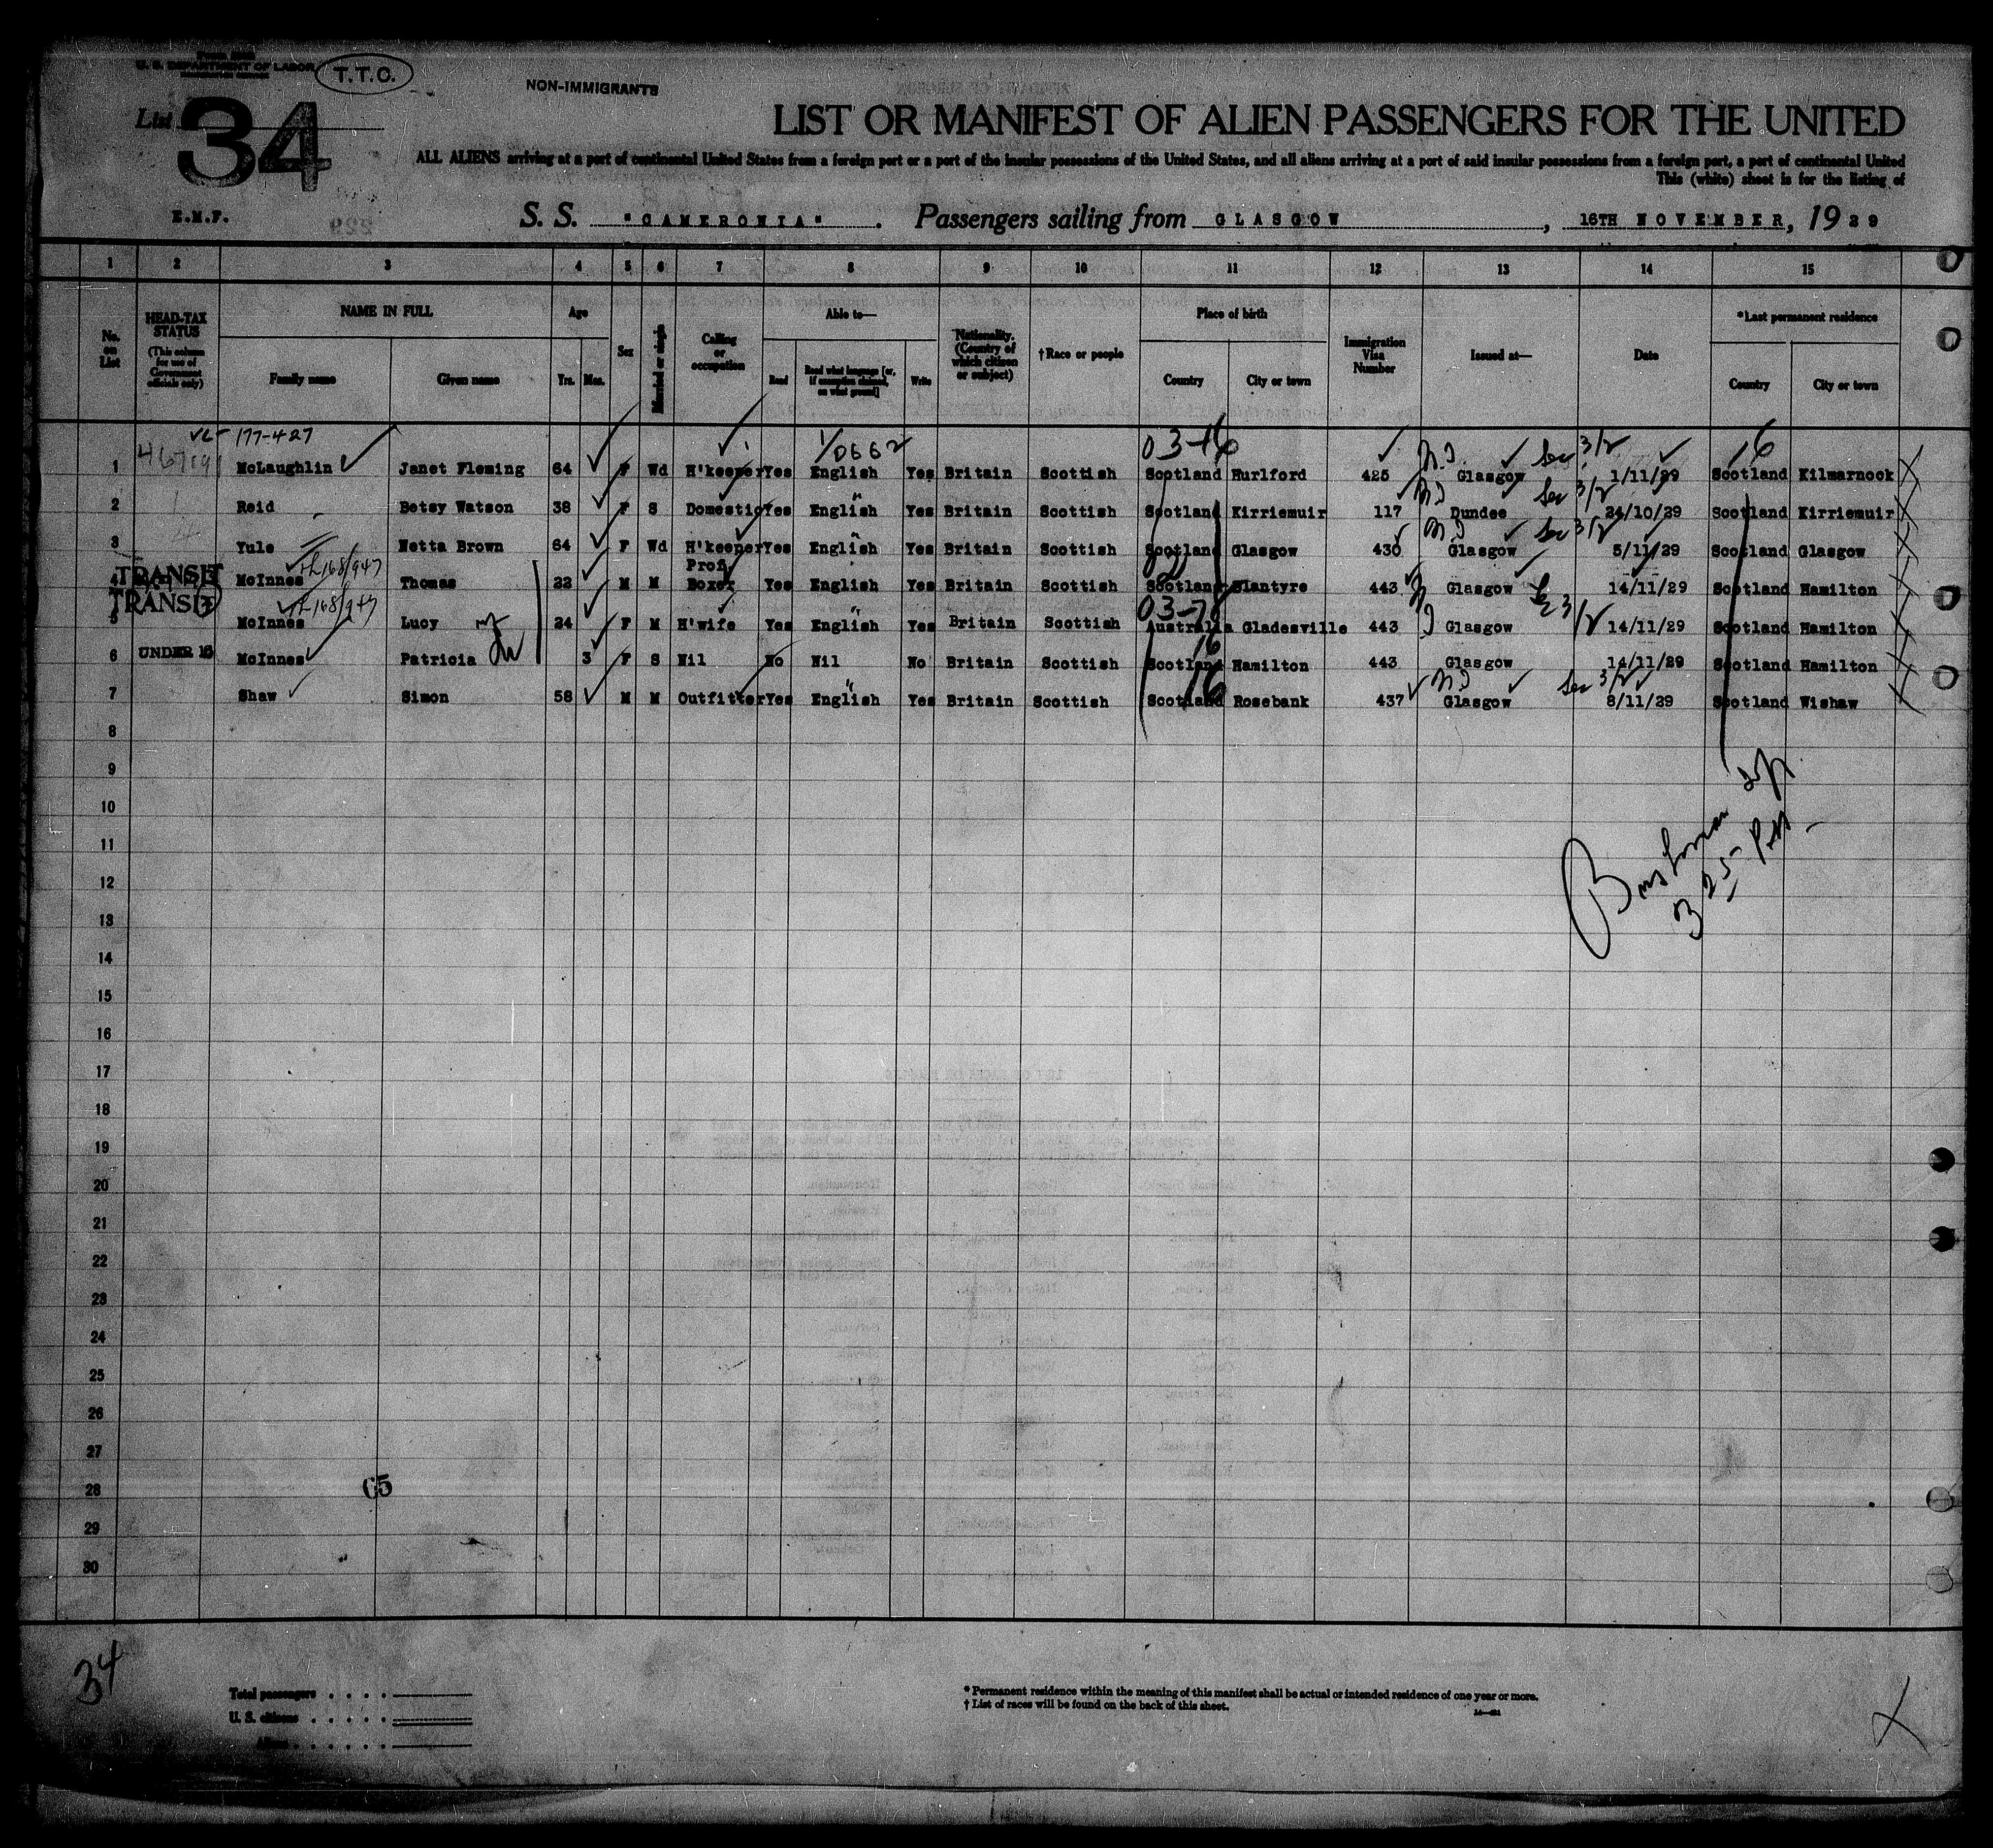 U. S. DEPARTMENT OF LABOR
T.T.O.
NON-IMMIGRANTS
List 34
LIST OR MANIFEST OF ALIEN PASSENGERS FOR THE UNITED
ALL ALIENS arriving at a port of continental United States from a foreign port or a port of the insular possessions of the United States, and all aliens arriving at a port of said insular possessions from a foreign port, a port of continental United
This (white) sheet is for the listing of
E.M.F.
S. S. "CAMERONIA". Passengers sailing from GLASGOW, 16TH NOVEMBER, 1929
1 2 3 4 5 6 7 8 9 10 11 12 13 14 15
No. on List
HEAD-TAX STATUS (This column for use of Government officials only)
NAME IN FULL Family name Given name
Age Yrs. Mos.
Sex
Married or single
Calling or occupation
Able to— Read Read what language [or, if exemption claimed, on what ground] Write
Nationality. (Country of which citizen or subject)
†Race or people
Place of birth Country City or town
Immigration Visa Number
Issued at—
Date
*Last permanent residence Country City or town
177-427 1/0662 03-16 16
1 McLaughlin Janet Fleming 64 F Wd H'keeper Yes English Yes Britain Scottish Scotland Hurlford 425 Glasgow 1/11/29 Scotland Kilmarnock
2 Reid Betsy Watson 38 F S Domestic Yes English Yes Britain Scottish Scotland Kirriemuir 117 Dundee 24/10/29 Scotland Kirriemuir
3 Yule Netta Brown 64 F Wd H'keeper Yes English Yes Britain Scottish Scotland Glasgow 430 Glasgow 5/11/29 Scotland Glasgow
TRANSIT 168/947
4 McInnes Thomas 22 M M Prof. Boxer Yes English Yes Britain Scottish Scotland Blantyre 443 Glasgow 14/11/29 Scotland Hamilton
TRANSIT 168/947 03-7
5 McInnes Lucy 24 F M H'wife Yes English Yes Britain Scottish Australia Gladesville 443 Glasgow 14/11/29 Scotland Hamilton
6 UNDER 16 McInnes Patricia 3 F S Nil No Nil No Britain Scottish Scotland Hamilton 443 Glasgow 14/11/29 Scotland Hamilton
7 Shaw Simon 58 M M Outfitter Yes English Yes Britain Scottish Scotland Rosebank 437 Glasgow 8/11/29 Scotland Wishaw
8
9
10
11
12
13
14
15
16
17
18
19
20
21
22
23
24
25
26
27
28 65
29
30
34
Total passengers
U. S. citizens
Aliens
* Permanent residence within the meaning of this manifest shall be actual or intended residence of one year or more.
† List of races will be found on the back of this sheet.